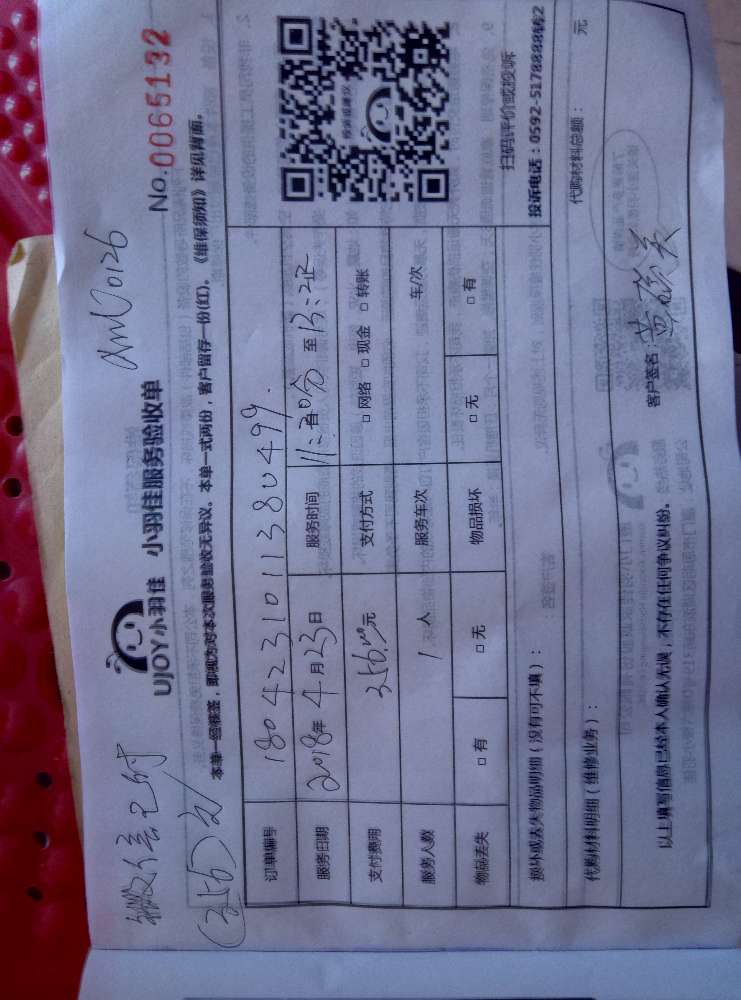 微信已付
(256)元
xmU0126
UJOY小羽佳 小羽佳服务验收单
No.0065132
本单一经核签，即视为对本次服务验收无异议。本单一式两份，客户留存一份(红)。《维保须知》详见背面。
订单编号 180423101138 0499
服务日期 2018年4月23日 服务时间 至
支付费用 256.00元 支付方式 □网络 □现金 □转账
服务人数 1人 服务车次 车/次
物品丢失 □有 □无 物品损坏 □无 □有
扫码评价或投诉
投诉电话：0592-5178888转2
损坏或丢失物品明细（没有可不填）：
代购材料明细（维修业务）： 代购材料总额： 元
以上填写信息已经本人确认无误，不存在任何争议纠纷。 客户签名：